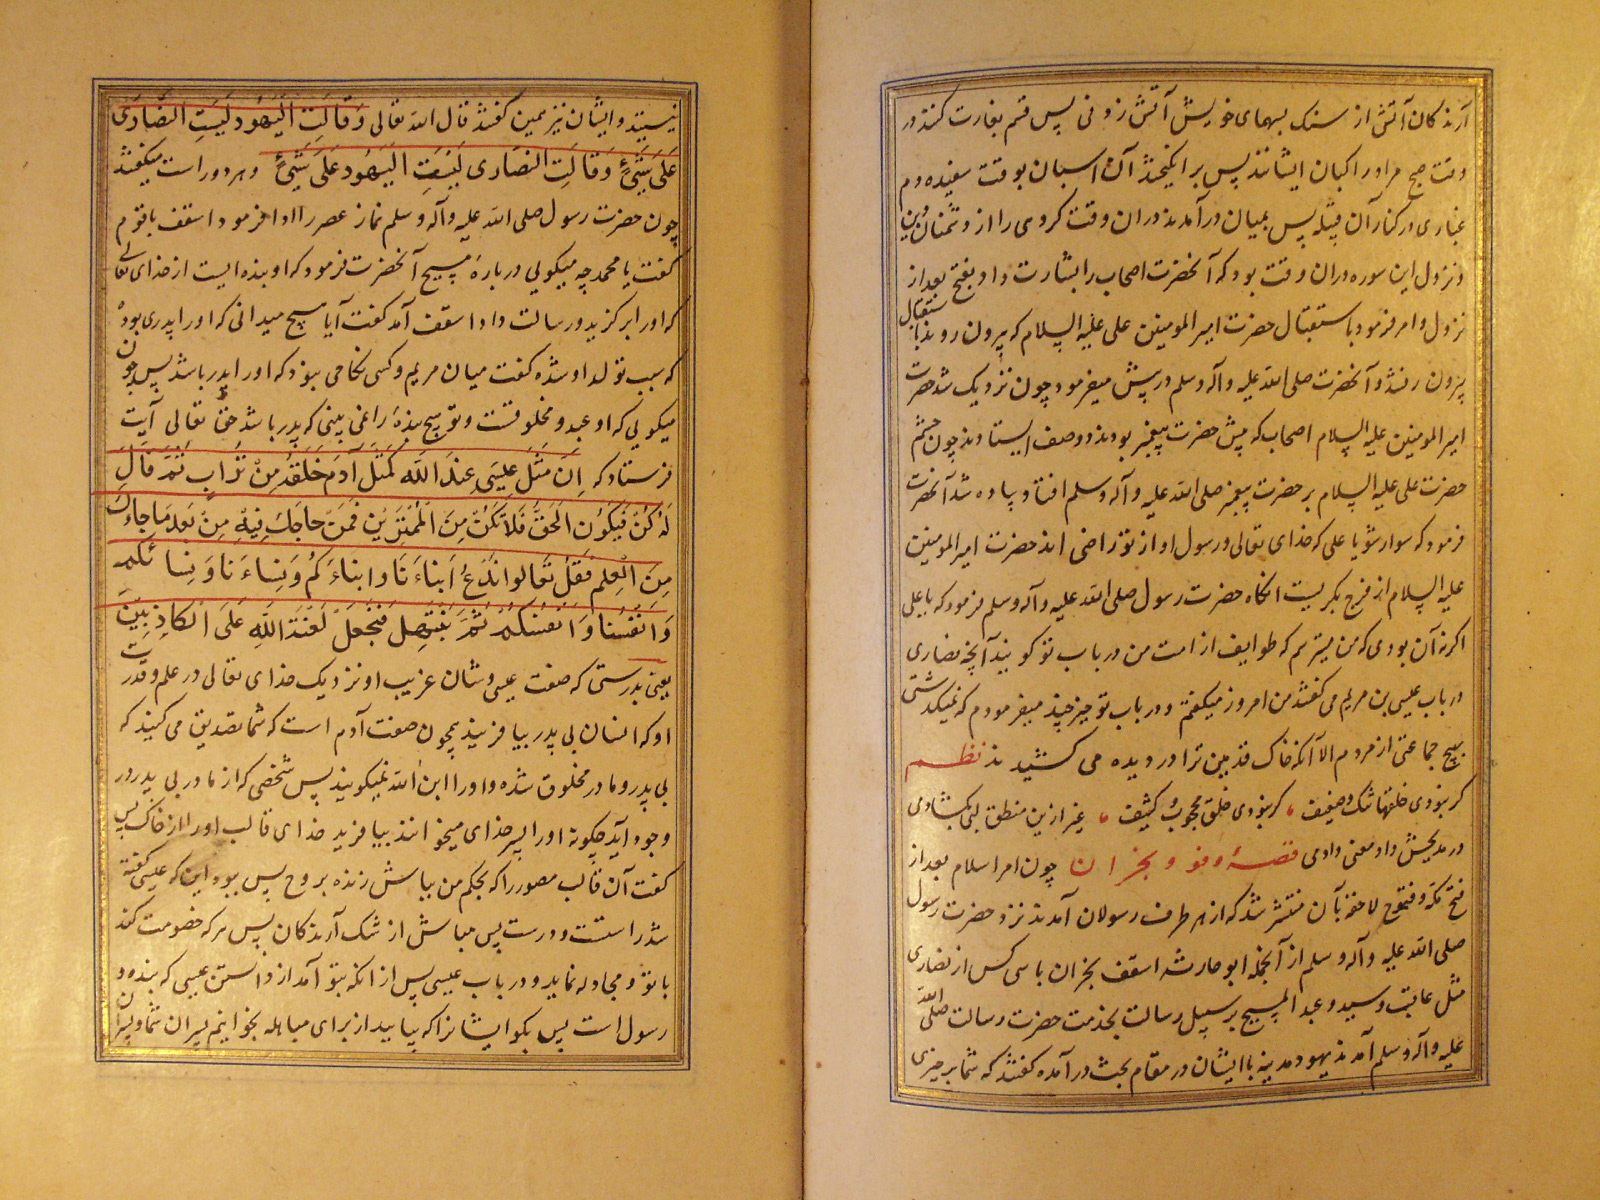 آرندکان آتش از سنک بسمهای خویش آتش زدنی پس قسم بغارت کنندر
وقت صبح مراد راکبان ایشانند پس برانکیختند آن اسبان بوقت سفیده دم
غباری در کنار آن قبیله پس بمیان درآمدند دران وقت کروهی را از دشمنان دین
و نزول این سوره دران وقت بود که آنحضرت اصحاب را بشارت داد بفتح بعد از
نزول وامر فرمود باستقبال حضرت امیر المومنین علی علیه السلام که بیرون روند باستقبال
بیرون رفتند و آنحضرت صلی الله علیه وآله وسلم در پیش میفرمود چون نزدیک شد حضرت
امیر المومنین علیه السلام اصحاب که پیش حضرت پیغمبر بودند دو صف ایستادند چون چشم
حضرت علی علیه السلام بر حضرت پیغمبر صلی الله علیه وآله وسلم افتاد پیاده شد آنحضرت
فرمود که سوار شو یا علی که خدای تعالی و رسول او از تو راضی اند حضرت امیر المومنین
علیه السلام از فرح بکریست انکاه حضرت رسول صلی الله علیه وآله وسلم فرمود که یا علی
اکر نه آن بودی که من میترسم که طوایف از امت من در باب تو کویند آنچه نصاری
در باب عیسی بن مریم می کفتند من امروز میکفتم و در باب تو چیز چند میفرمودم که نمیکذشتی
بهیچ جماعتی از مردم الا آنکه خاک قدمین ترا در دیده می کشیدند نظم
کر نبودی خلقها شک وضعیف کر نبودی خلق محجوب و کثیف غیر ازین منطق لبی بکشادمی
در مدیحش داد معنی دادمی قصهٔ وفد و نجران چون امر اسلام بعد از
فتح مکه و فتوح لاحقه بآن منتشر شد که از هر طرف رسولان آمدند نزد حضرت رسول
صلی الله علیه وآله وسلم از آنجمله ابو حارثه اسقف نجران با سی کس از نصاری
مثل عاقب وسید و عبد المسیح بر سبیل رسالت بخدمت حضرت رسالت صلی الله
علیه وآله وسلم آمدند یهود مدینه با ایشان در مقام بحث درآمده کفتند که شما بر چیزی
نیستید و ایشان نیز همین کفتند قال الله تعالی وَقَالَتِ الْیَهُودُ لَیْسَتِ النَّصَارَی
عَلَی شَیْئٍ وَقَالَتِ النَّصَارَی لَیْسَتِ الْیَهُودُ عَلَی شَیْئٍ وهر دو راست میکفتند
چون حضرت رسول صلی الله علیه وآله وسلم نماز عصر را ادا فرمود اسقف با قوم
کفت یا محمد چه میکویی در بارهٔ مسیح آنحضرت فرمود که او بنده ایست از خدای تعالی
که اورا برکزید و رسالت داد اسقف آمد کفت آیا مسیح میدانی که اورا پدری بوده
که سبب تولد او شده کفت میان مریم و کسی نکاحی نبود که اورا پدر باشد پس چون
میکویی که او عبد و مخلوقست و تو هیچ بندهٔ را نمی بینی که پدر باشد حق تعالی آیت
فرستاد که اِنَّ مَثَلَ عِیسَی عِنْدَ اللهِ کَمَثَلِ آدَمَ خَلَقَهُ مِنْ تُرَابٍ ثُمَّ قَالَ
لَهُ کُنْ فَیَکُونُ اَلْحَقُّ فَلَا تَکُنْ مِنَ الْمُمْتَرِینَ فَمَنْ حَاجَّکَ فِیهِ مِنْ بَعْدِ مَا جَاءَکَ
مِنَ الْعِلْمِ فَقُلْ تَعَالَوا نَدْعُ اَبْنَاءَنَا وَاَبْنَاءَکُمْ وَنِسَاءَنَا وَنِسَائَکُمْ
وَاَنْفُسَنَا وَاَنْفُسَکُمْ ثُمَّ نَبْتَهِلْ فَنَجْعَلْ لَعْنَةَ اللهِ عَلَی الْکَاذِبِینَ
یعنی بدرستی که صفت عیسی و شان غریب او نزدیک خدای تعالی در علم و قدرت
او که انسان بی پدر بیافریند همچون صفت آدم است که شما تصدیق می کنید که
بی پدر و مادر مخلوق شده و اورا ابن الله نمیکویند پس شخصی که از مادر بی پدر در
وجود آید چکونه اورا پسر خدای میخوانند بیافرید خدای قالب اورا از خاک پس
کفت آن قالب مصور را که بحکم من بباش زنده بروح پس ببود این که عیسی کفته
شد راستست و درست پس مباش از شک آرندکان پس هر که خصومت کند
با تو و مجادله نماید و در باب عیسی پس از انکه بتو آمد از دانستن عیسی که بنده و
رسول است پس بکو ایشانرا که بیایید از برای مباهله بخوانیم پسران شما و پسران